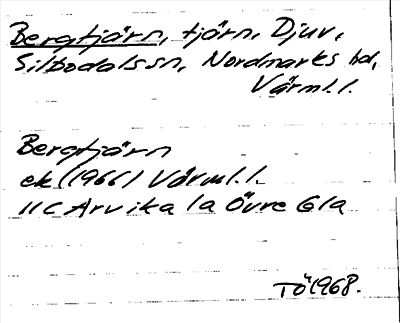 Bergtjärn, tjärn, Djuv,
Silbodals sn, Nordmarks hd,
Värml. l.
Bergtjärn
ek (1966) Värml. l.
11C Arvika 1a Övre Gla
TÖ 1968.